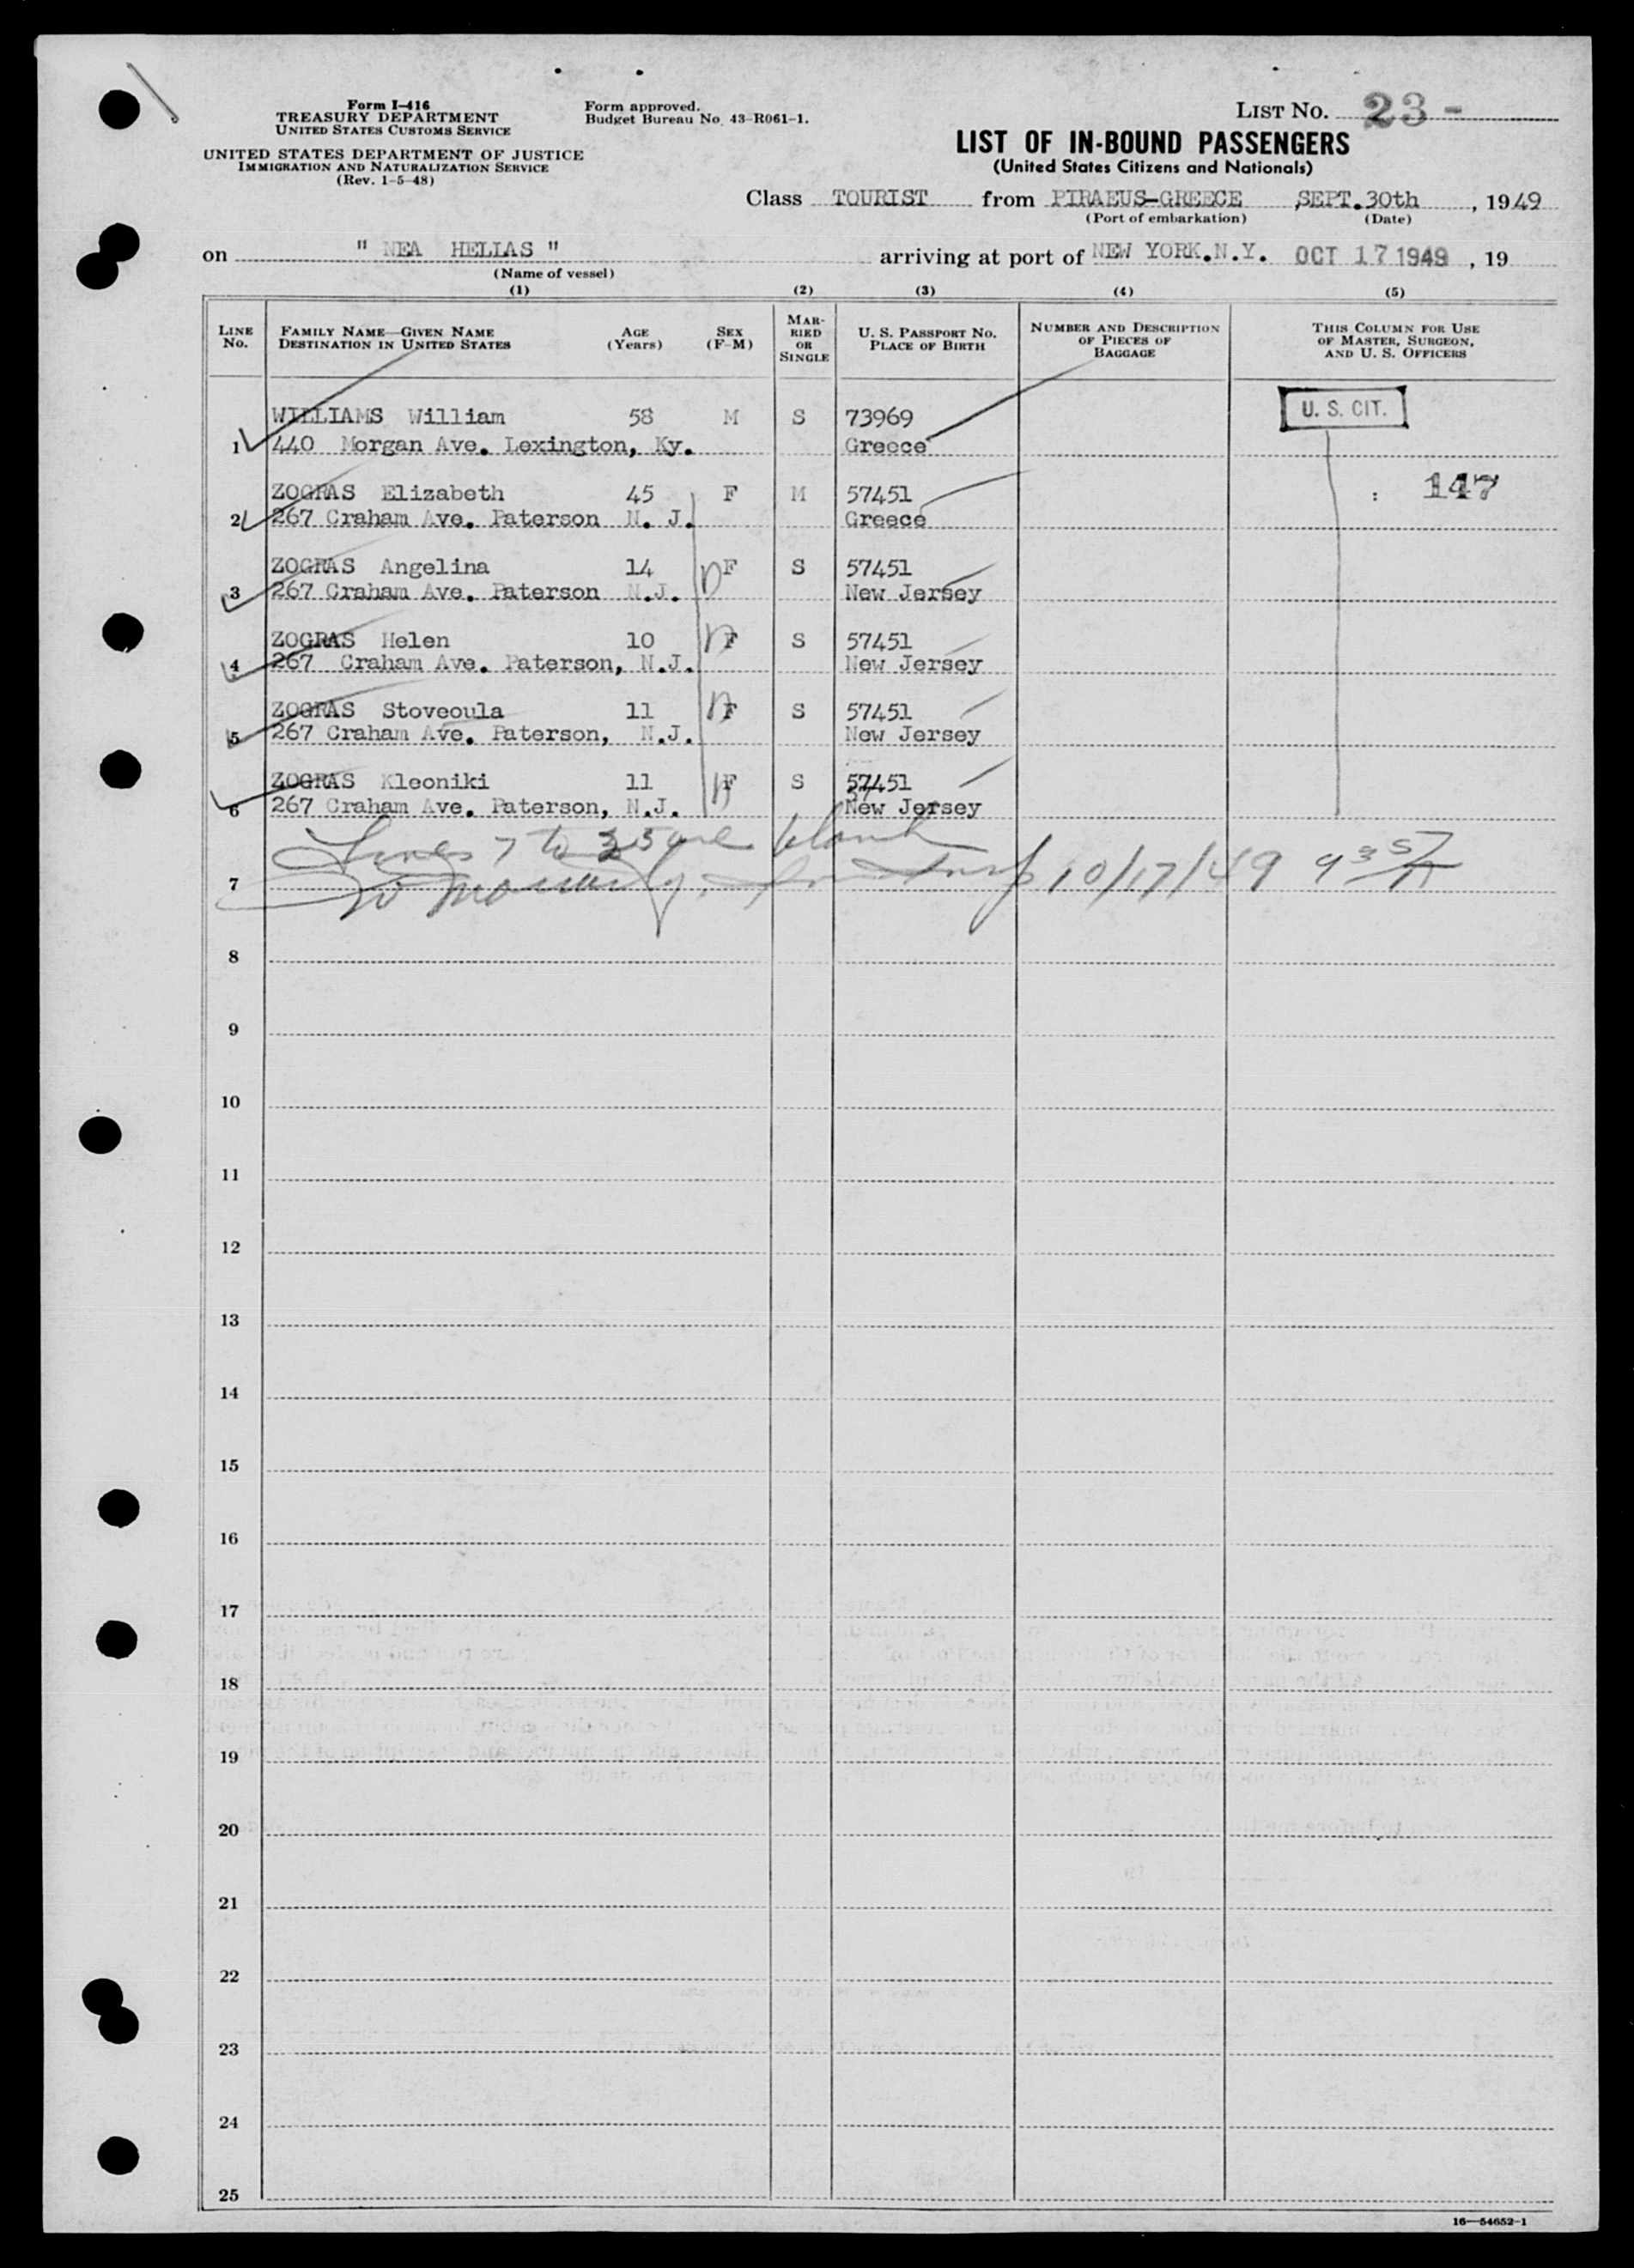 Form I-416
TREASURY DEPARTMENT
UNITED STATES CUSTOMS SERVICE
UNITED STATES DEPARTMENT OF JUSTICE
IMMIGRATION AND NATURALIZATION SERVICE
(Rev. 1-5-48)
Form approved.
Budget Bureau No. 43-R061-1.
LIST NO. 23-
LIST OF IN-BOUND PASSENGERS
(United States Citizens and Nationals)
Class TOURIST from PIRAEUS-GREECE SEPT.30th, 1949
(Port of embarkation) (Date)
on " NEA HELLAS " arriving at port of NEW YORK.N.Y. OCT 17 1949, 19
(Name of vessel)
(1) (2) (3) (4) (5)
LINE NO. FAMILY NAME—GIVEN NAME DESTINATION IN UNITED STATES AGE (Years) SEX (F-M) MARRIED OR SINGLE U. S. PASSPORT NO. PLACE OF BIRTH NUMBER AND DESCRIPTION OF PIECES OF BAGGAGE THIS COLUMN FOR USE OF MASTER, SURGEON, AND U. S. OFFICERS
WILLIAMS William 58 M S 73969 U. S. CIT.
1 440 Morgan Ave. Lexington, Ky. Greece
ZOGRAS Elizabeth 45 F M 57451 : 147
2 267 Craham Ave. Paterson N. J. Greece
ZOGRAS Angelina 14 F S 57451
3 267 Craham Ave. Paterson N.J. New Jersey
ZOGRAS Helen 10 F S 57451
4 267 Craham Ave. Paterson, N.J. New Jersey
ZOGRAS Stoveoula 11 F S 57451
5 267 Craham Ave. Paterson, N.J. New Jersey
ZOGRAS Kleoniki 11 F S 57451
6 267 Craham Ave. Paterson, N.J. New Jersey
Lines 7 to 25 are blank
7 10/17/49 9 35 A
8
9
10
11
12
13
14
15
16
17
18
19
20
21
22
23
24
25
16—54652-1